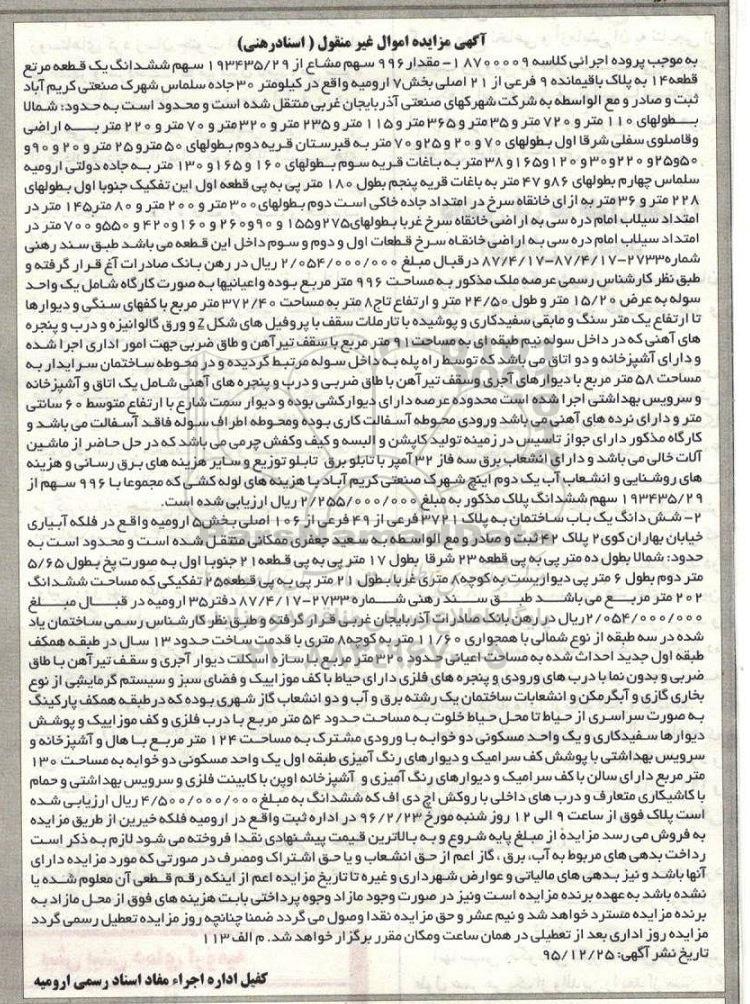 آگهی مزایده اموال غیر منقول ( اسنادرهنی)
به موجب پروده اجرائی کلاسه ۸۷۰۰۰۰۹ ۱- مقدار ۹۹۶ سهم مشاع از ۱۹۳۴۳۵/۲۹ سهم ششدانگ یک قطعه مرتع
قطعه۱۴ به پلاک باقیمانده ۹ فرعی از ۲۱ اصلی بخش۷ ارومیه واقع در کیلومتر ۳۰ جاده سلماس شهرک صنعتی کریم آباد
ثبت و صادر و مع الواسطه به شرکت شهرکهای صنعتی آذربایجان غربی منتقل شده است و محدود است به حدود: شمالا
بطولهای ۱۱۰ متر و ۷۲۰ متر و ۳۵ متر و ۳۶۵ متر و ۱۱۵ متر و ۲۳۵ متر و ۳۲۰ متر و ۷۰ متر و ۲۲۰ متر به اراضی
وقاصلوی سفلی شرقا اول بطولهای ۷۰ و ۲۰ و ۲۵ و ۷۰ متر به قبرستان قریه دوم بطولهای ۵۰ متر و ۲۵ متر و ۲۰ و ۹۰ و
۵۰ و۲۵ و ۲۲۰ و۳۰ و ۱۲۰ و۱۶۵ و ۳۸ متر به باغات قریه سوم بطولهای ۱۶۰ و ۱۶۵ و ۱۳۰ متر به جاده دولتی ارومیه
سلماس چهارم بطولهای ۸۶ و ۴۷ متر به باغات قریه پنجم بطول ۱۸۰ متر پی به پی قطعه اول این تفکیک جنوبا اول بطولهای
۲۲۸ متر و ۳۶ متر به ازای خانقاه سرخ در امتداد جاده خاکی است دوم بطولهای ۳۰۰ متر و ۲۰۰ متر و ۸۰ متر ۱۴۵ متر در
امتداد سیلاب امام دره سی به اراضی خانقاه سرخ غربا بطولهای ۲۷۵ و۱۵۵ و ۹۰ و۲۶۰ و ۱۶۰ و ۴۲۰ و ۵۵۰ و ۷۰۰ متر در
امتداد سیلاب امام دره سی به اراضی خانقاه سرخ قطعات اول و دوم و سوم داخل این قطعه می باشد طبق سند رهنی
شماره۲۷۳۳-۸۷/۴/۱۷-۸۷/۴/۱۷ درقبال مبلغ ۲/۰۵۴/۰۰۰/۰۰۰ ریال در رهن بانک صادرات آغ قرار گرفته و
طبق نظر کارشناس رسمی عرصه ملک مذکور به مساحت ۹۹۶ متر مربع بوده واعیانیها به صورت کارگاه شامل یک واحد
سوله به عرض ۱۵/۲۰ متر و طول ۲۴/۵۰ متر و ارتفاع تاج ۸ متر به مساحت ۳۷۲/۴۰ متر مربع با کفهای سنگی و دیوارها
تا ارتفاع یک متر سنگ و مابقی سفیدکاری و پوشیده با تارملات سقف با پروفیل های شکل Z و ورق گالوانیزه و درب و پنجره
های آهنی که در داخل سوله نیم طبقه ای به مساحت ۹۱ متر مربع با سقف تیرآهن و طاق ضربی جهت امور اداری اجرا شده
و دارای آشپزخانه و دو اتاق می باشد که توسط راه پله به داخل سوله مرتبط گردیده و در محوطه ساختمان سرایدار به
مساحت ۵۸ متر مربع با دیوارهای آجری وسقف تیر آهن با طاق ضربی و درب و پنجره های آهنی شامل یک اتاق و آشپزخانه
و سرویس بهداشتی اجرا شده است محدوده عرصه دارای دیوارکشی بوده و دیوار سمت شارع با ارتفاع متوسط ۶۰ سانتی
متر و دارای نرده های آهنی می باشد ورودی محوطه آسفالت کاری بوده ومحوطه اطراف سوله فاقد آسفالت می باشد و
کارگاه مذکور دارای جواز تاسیس در زمینه تولید کاپشن و البسه و کیف وکفش چرمی می باشد که در حل حاضر از ماشین
آلات خالی می باشد و دارای انشعاب برق سه فاز ۳۲ آمپر با تابلو برق تابلو توزیع و سایر هزینه های برق رسانی و هزینه
های روشنایی و انشعاب آب یک دوم اینچ شهرک صنعتی کریم آباد با هزینه های لوله کشی که مجموعا با ۹۹۶ سهم از
۱۹۳۴۳۵/۲۹ سهم ششدانگ پلاک مذکور به مبلغ ۲/۲۵۵/۰۰۰/۰۰۰ ریال ارزیابی شده است.
۲- شش دانگ یک باب ساختمان به پلاک ۳۷۲۱ فرعی از ۴۹ فرعی از ۱۰۶ اصلی بخش۵ ارومیه واقع در فلکه آبیاری
خیابان بهاران کوی۲ پلاک ۴۲ ثبت و صادر و مع الواسطه به سعید جعفری ممکانی منتقل شده است و محدود است به
حدود: شمالا بطول ده متر پی به پی قطعه ۲۳ شرقا بطول ۱۷ متر پی به پی قطعه۲۱ جنوبا اول به صورت پخ بطول ۵/۶۵
متر دوم بطول ۶ متر پی دیواریست به کوچه۸ متری غربا بطول ۲۱ متر پی به پی قطعه۲۵ تفکیکی که مساحت ششدانگ
۲۰۲ متر مربع می باشد طبق سند رهنی شماره ۲۷۳۳-۸۷/۴/۱۷ دفتر۳۵ ارومیه در قبال مبلغ
۲/۰۵۴/۰۰۰/۰۰۰ریال در رهن بانک صادرات آذربایجان غربی قرار گرفته و طبق نظر کارشناس رسمی ساختمان یاد
شده در سه طبقه از نوع شمالی با همجواری ۱۱/۶۰ متر به کوچه۸ متری با قدمت ساخت حدود ۱۳ سال در طبقه همکف
طبقه اول جدید احداث شده به مساحت اعیانی حدود ۳۲۰ متر مربع با سازه اسکلت دیوار آجری و سقف تیرآهن با طاق
ضربی و بدون نما با درب های ورودی و پنجره های فلزی دارای حیاط با کف موزاییک و فضای سبز و سیستم گرمایشی از نوع
بخاری گازی و آبگرمکن و انشعابات ساختمان یک رشته برق و آب و دو انشعاب گاز شهری بوده که درطبقه همکف پارکینگ
به صورت سراسری از حیاط تا محل حیاط خلوت به مساحت حدود ۵۴ متر مربع با درب فلزی و کف موزاییک و پوشش
دیوارها سفیدکاری و یک واحد مسکونی دو خوابه با ورودی مشترک به مساحت ۱۲۴ متر مربع با هال و آشپزخانه و
سرویس بهداشتی با پوشش کف سرامیک و دیوارهای رنگ آمیزی طبقه اول یک واحد مسکونی دو خوابه به مساحت ۱۳۰
متر مربع دارای سالن با کف سرامیک و دیوارهای رنگ آمیزی و آشپزخانه اوپن با کابینت فلزی و سرویس بهداشتی و حمام
با کاشیکاری متعارف و درب های داخلی با روکش اچ دی اف که ششدانگ به مبلغ ۴/۵۰۰/۰۰۰/۰۰۰ ریال ارزیابی شده
است پلاک فوق از ساعت ۹ الی ۱۲ روز شنبه مورخ ۹۶/۲/۲۳ در اداره ثبت واقع در ارومیه فلکه خیرین از طریق مزایده
به فروش می رسد مزایده از مبلغ پایه شروع و به بالاترین قیمت پیشنهادی نقدا فروخته می شود لازم به ذکر است
رداخت بدهی های مربوط به آب، برق ، گاز اعم از حق انشعاب و یا حق اشتراک ومصرف در صورتی که مورد مزایده دارای
آنها باشد و نیز بدهی های مالیاتی و عوارض شهرداری و غیره تا تاریخ مزایده اعم از اینکه رقم قطعی آن معلوم شده یا
نشده باشد به عهده برنده مزایده است ونیز در صورت وجود مازاد وجوه پرداختی بابت هزینه های فوق از محل مازاد به
برنده مزایده مسترد خواهد شد و نیم عشر و حق مزایده نقدا وصول می گردد ضمنا چنانچه روز مزایده تعطیل رسمی گردد
مزایده روز اداری بعد از تعطیلی در همان ساعت ومکان مقرر برگزار خواهد شد. م الف ۱۱۳
تاریخ نشر آگهی: ۹۵/۱۲/۲۵
کفیل اداره اجراء مفاد اسناد رسمی ارومیه